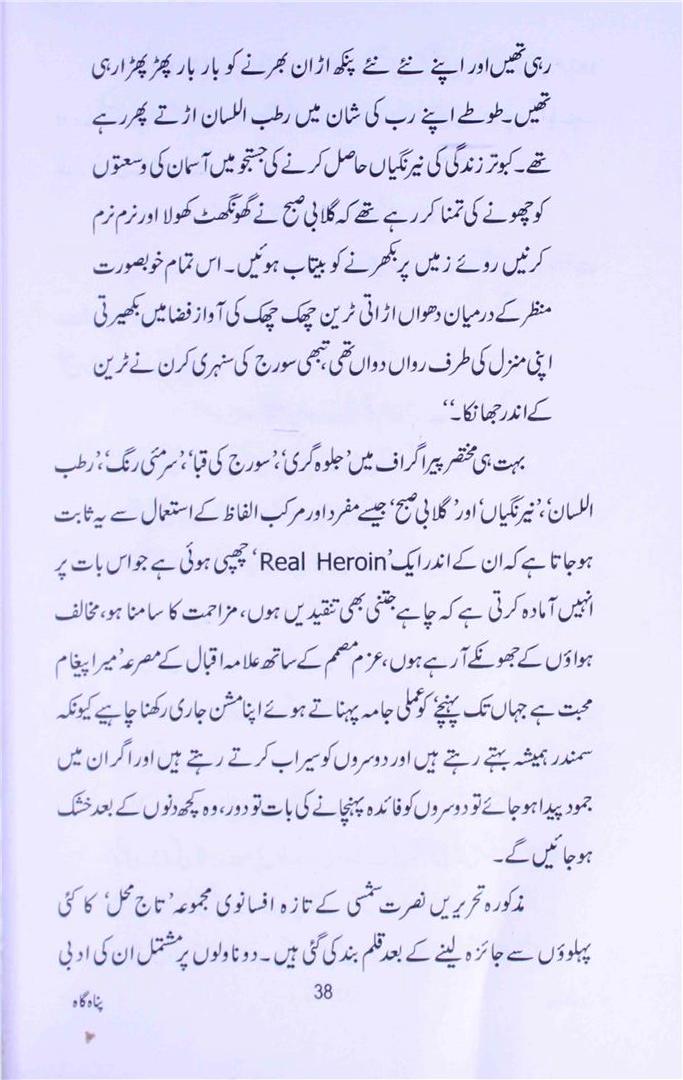 رہی تھیں اور اپنے نئے نئے پنکھ اڑان بھرنے کو بار بار پھڑپھڑا رہی
تھیں۔ طوطے اپنے رب کی شان میں رطب اللسان اڑتے پھر رہے
تھے۔ کبوتر زندگی کی نیرنگیاں حاصل کرنے کی جستجو میں آسمان کی وسعتوں
کو چھونے کی تمنا کر رہے تھے کہ گلابی صبح نے گھونگھٹ کھولا اور نرم نرم
کرنیں روئے زمیں پر بکھرنے کو بیتاب ہوئیں۔ اس تمام خوبصورت
منظر کے درمیان دھواں اڑاتی ٹرین چھک چھک کی آواز فضا میں بکھیرتی
اپنی منزل کی طرف رواں دواں تھی، تبھی سورج کی سنہری کرن نے ٹرین
کے اندر جھانکا۔‘‘
بہت ہی مختصر پیراگراف میں ’جلوہ گری‘، ’سورج کی قبا‘، ’سرمئی رنگ‘، ’رطب
اللسان‘، ’نیرنگیاں‘ اور ’گلابی صبح‘ جیسے مفرد اور مرکب الفاظ کے استعمال سے یہ ثابت
ہو جاتا ہے کہ ان کے اندر ایک ’Real Heroin‘ چھپی ہوئی ہے جو اس بات پر
انہیں آمادہ کرتی ہے کہ چاہے جتنی بھی تنقیدیں ہوں، مزاحمت کا سامنا ہو، مخالف
ہواؤں کے جھونکے آ رہے ہوں، عزم مصمم کے ساتھ علامہ اقبال کے مصرعہ ’میرا پیغام
محبت ہے جہاں تک پہنچے‘ کو عملی جامہ پہناتے ہوئے اپنا مشن جاری رکھنا چاہیے کیونکہ
سمندر ہمیشہ بہتے رہتے ہیں اور دوسروں کو سیراب کرتے رہتے ہیں اور اگر ان میں
جمود پیدا ہو جائے تو دوسروں کو فائدہ پہنچانے کی بات تو دور، وہ کچھ دنوں کے بعد خشک
ہو جائیں گے۔
مذکورہ تحریریں نصرت شمسی کے تازہ افسانوی مجموعہ ’تاج محل‘ کا کئی
پہلوؤں سے جائزہ لینے کے بعد قلم بند کی گئی ہیں۔ دو ناولوں پر مشتمل ان کی ادبی
38
پناہ گاہ